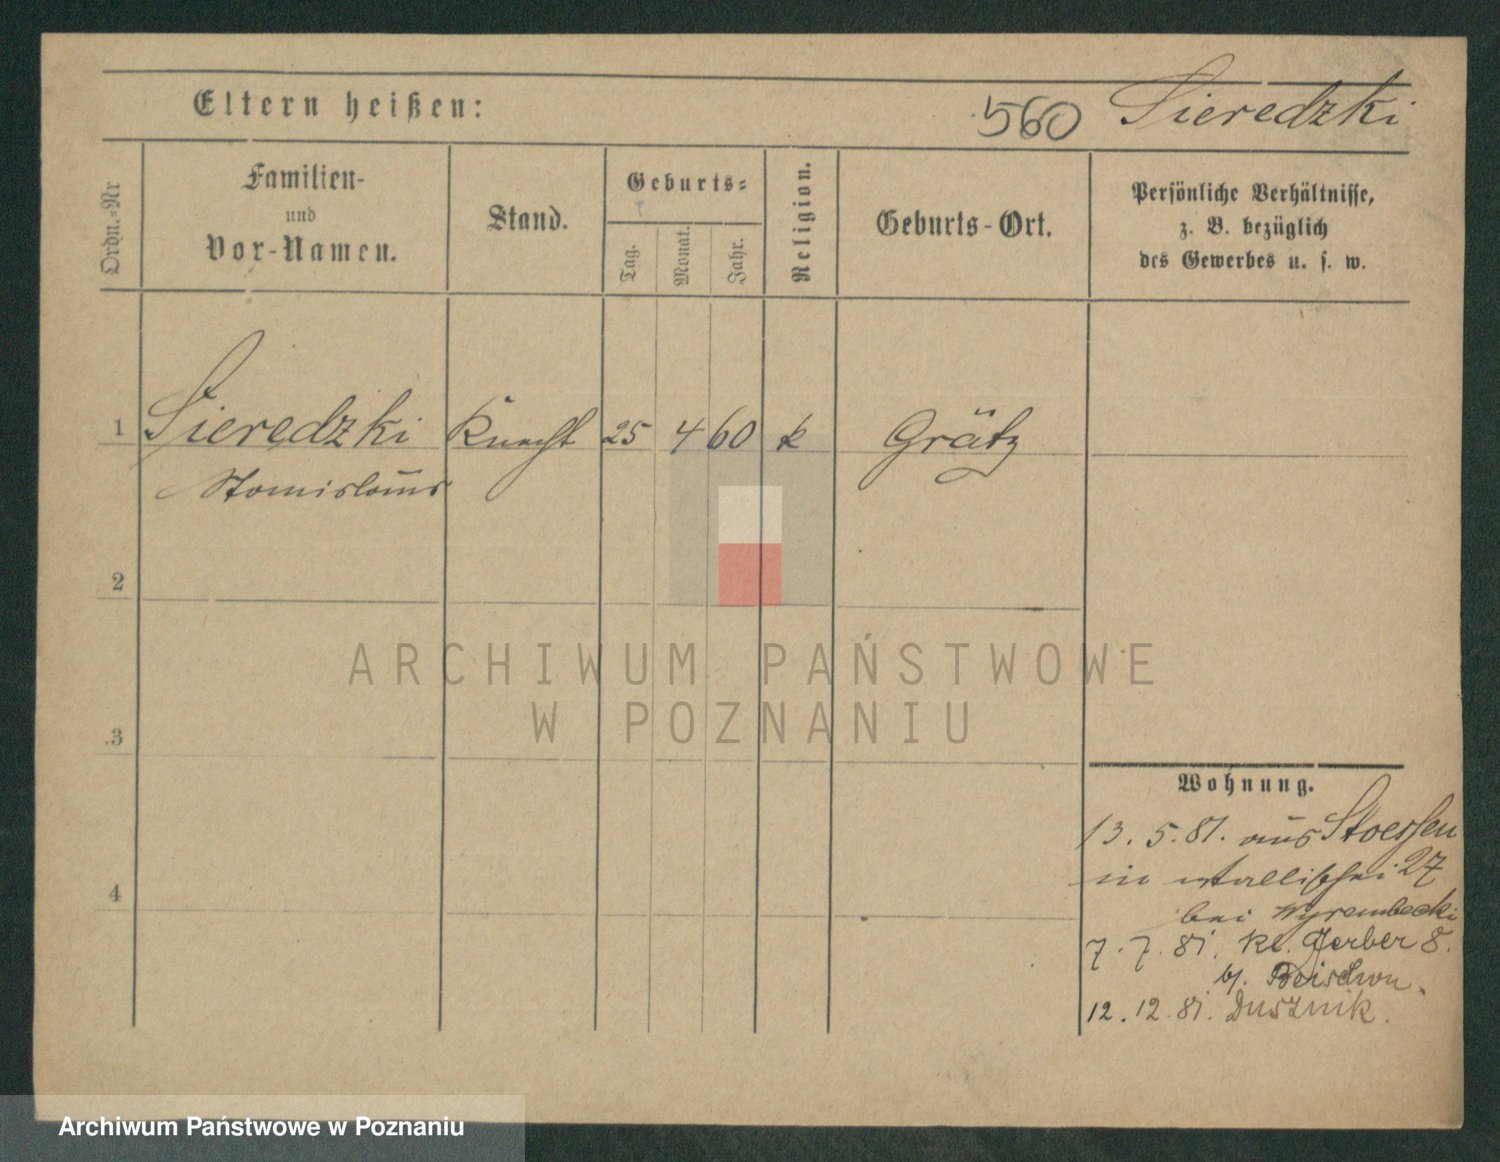 Eltern heißen:
560 Sieredzki
Ordn.=Nr
Familien-
und
Vor-Namen.
Stand.
Geburts=
Tag.
Monat.
Jahr.
Religion.
Geburts-Ort.
Persönliche Verhältnisse,
z. B. bezüglich
des Gewerbes u. s. w.
1 Sieredzki Knecht 25 4 60 k Grätz
Stanislaus
2
ARCHIWUM PAŃSTWOWE
W POZNANIU
3
4
Wohnung.
13. 5. 81. aus
in 27
bei Wyrembecki
7. 7. 81. Kl. Gerber 8.
b/.
12. 12. 81. Dusznik.
Archiwum Państwowe w Poznaniu